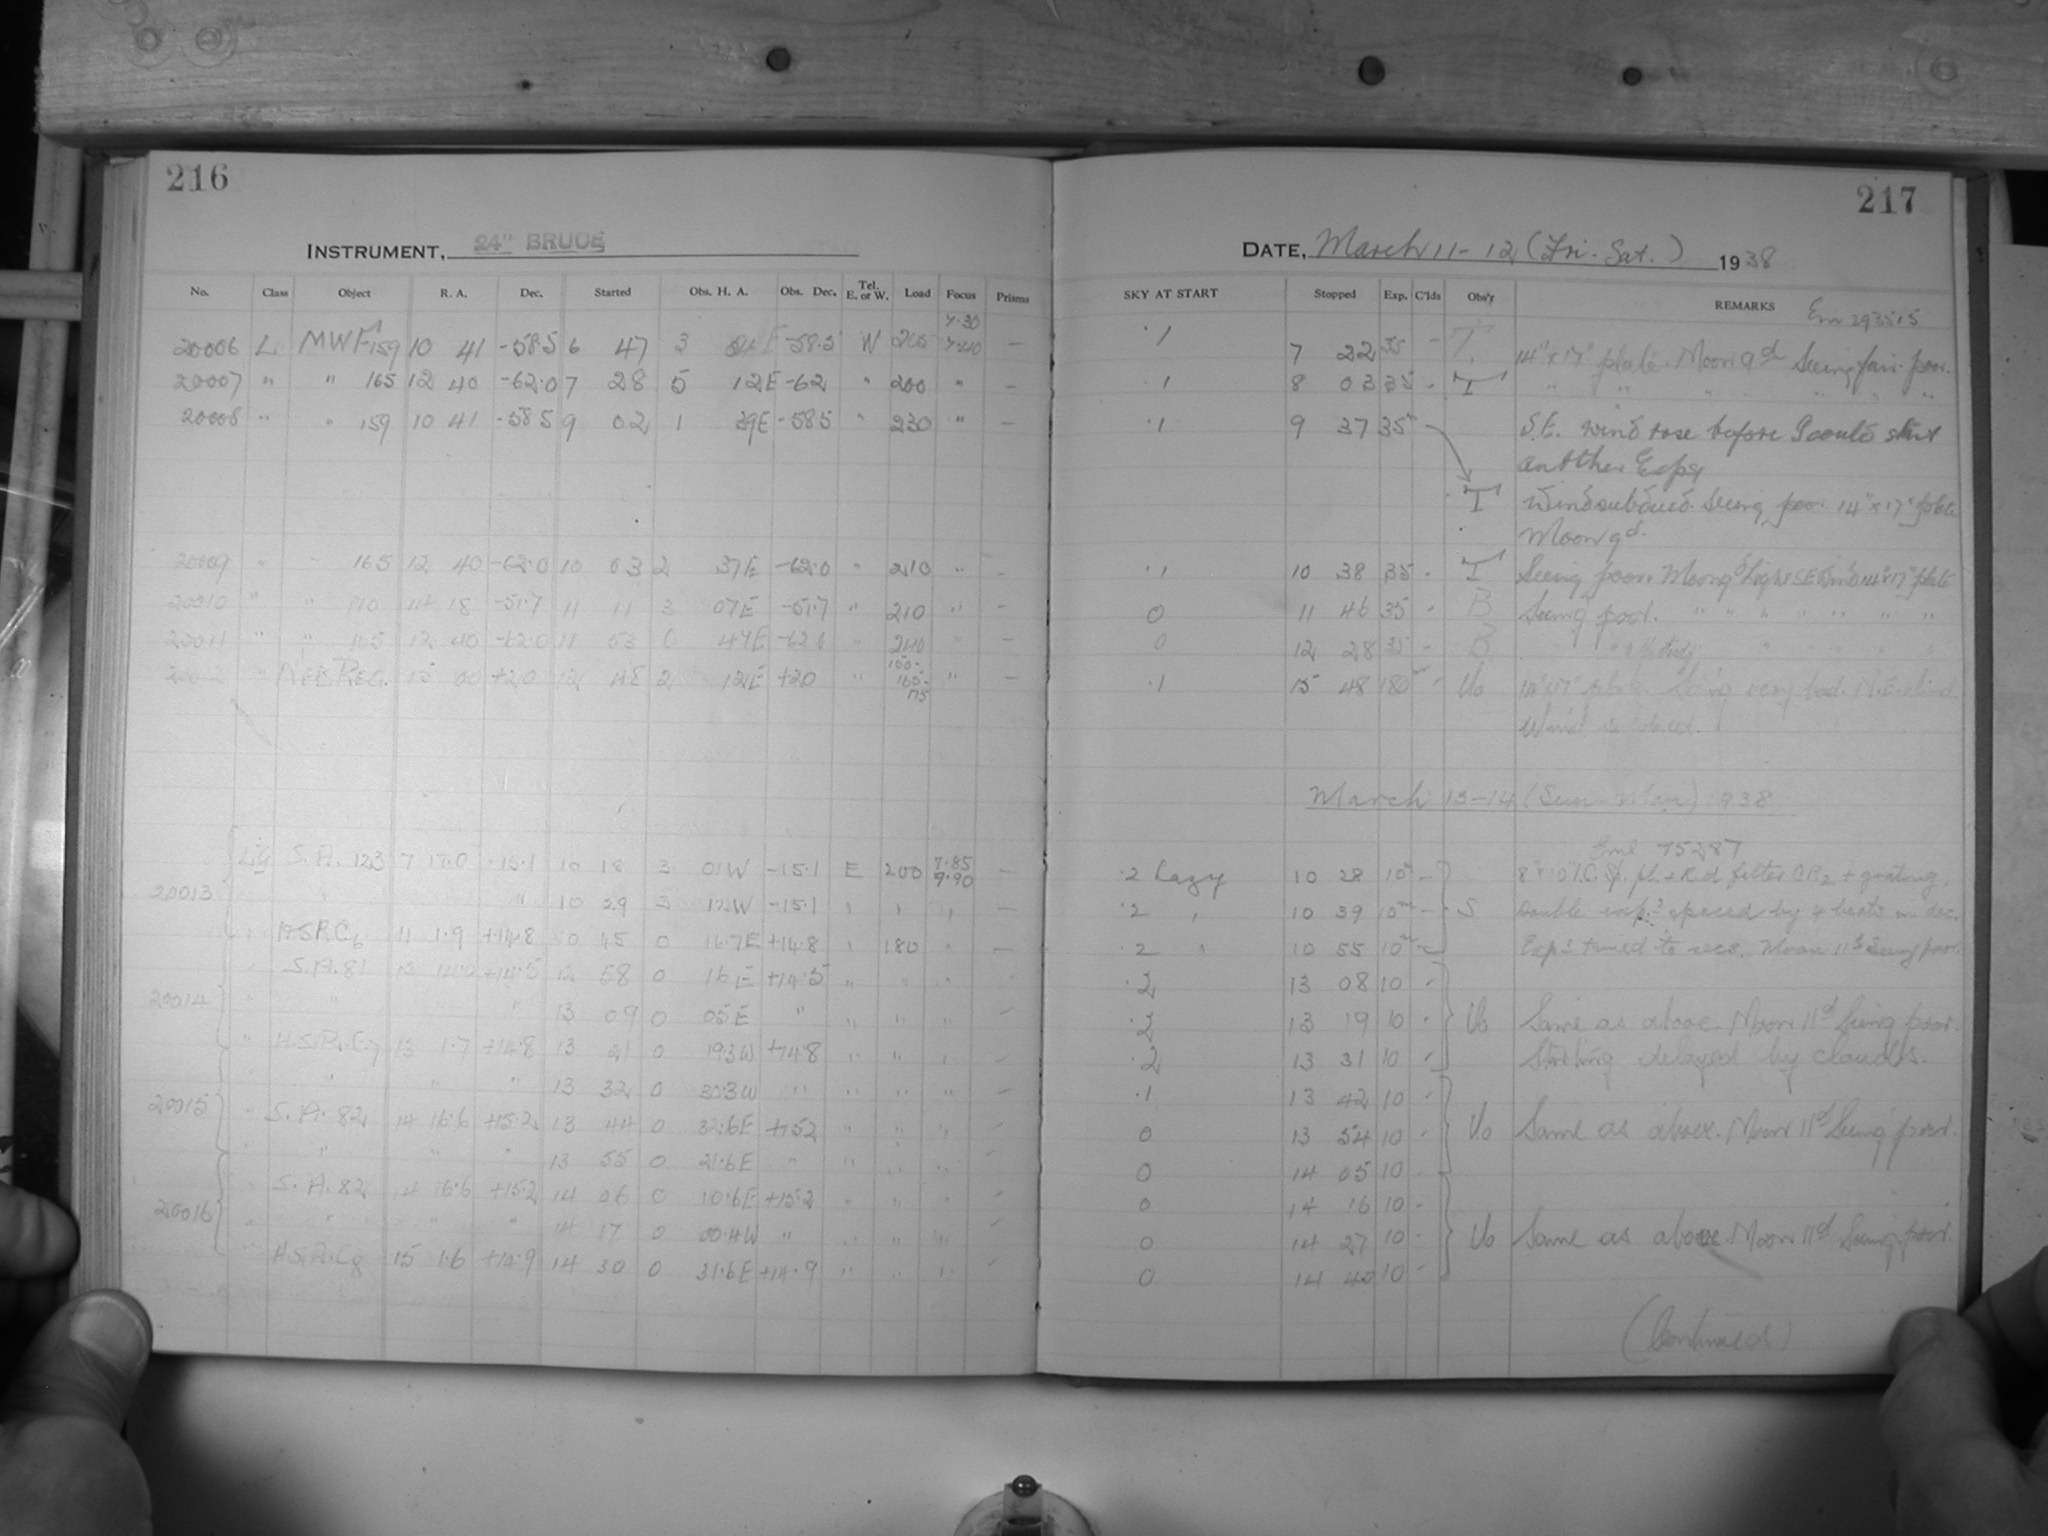 216
INSTRUMENT, 24" BRUCE
No. Class Object R. A. Dec. Started Obs. H. A. Obs. Dec. Tel. E. or W. Load Focus Prisms
20006 L MWF 159 10 41 -58.5 6 47 3 E -58.5 W 7.30 7.40 —
20007 " " 165 12 40 -62.0 7 28 5 12E -62 " 200 " —
20008 " " 159 10 41 -58.5 9 02 1 39E -58.5 " 230 " —
20009 " " 165 12 40 -62.0 10 03 2 37E -62.0 " 210 " —
20010 " " 170 14 18 -51.7 11 11 3 07E -51.7 " 210 " —
20011 " " 165 12 40 -62.0 11 53 0 47E " —
" 15 00 +20 12 48 2 12E +20 " 150- 165- 175 " —
S. A. 123 7 17.0 -15.1 10 18 3 01W -15.1 E 200 7.85 —
20013 " " 10 29 3 12W -15.1 " " "
H.S.R.C6 11 1.9 +14.8 10 45 0 16.7E +14.8 " 180 " —
S.A.81 13 +14.5 12 58 0 16E +14.5 " " " —
20014 " " " 13 09 0 05E " " " " —
" H.S.R.C.7 13 1.7 +14.8 13 21 0 19.3W +14.8 " " " —
" " " 13 32 0 30.3W " " " " —
20015 " S. A. 82 14 16.6 +15.2 13 44 0 32.6E +15.2 " " " —
" " " 13 55 0 21.6E " " " " —
S. A. 82 14 16.6 +15.2 14 06 0 10.6E +15.2 " " " —
20016 " " " 14 17 0 00.4W " " " " —
H.S.R.C8 15 1.6 +14.9 14 30 0 31.6E +14.9 " " "
217
DATE, March 11-12 (Fri-Sat.) 1938
SKY AT START Stopped Exp. C'lds Obs'r REMARKS
.1 7 22 35 - T. 14"x17" plate. Moon 9d Seeing fair-poor.
.1 8 03 35 - T " " " " " "
.1 9 37 35 S.E. wind rose before I could start
another Expt
T Wind subdued. Seeing poor. 14"x17" plate
Moon 9d.
.1 10 38 35 - T Seeing poor. Moon 9d Light S.E. wind 14"x17" plate
0 11 46 35 - B Seeing poor. " " " " " " "
0 12 28 35 - B
.1 15 48 180 - Uo 14"x17" plate Seeing very bad. N.E. Wind.
March 13-14 (Sun-Mon) 1938
.2 hazy 10 28 10m - filter CR2 + grating.
.2 " 10 39 10m - S Double exps spaced by 4 beats in dec.
.2 " 10 55 10m - Exps timed to secs. Moon 11d Seeing poor.
.2 13 08 10 -
.2 13 19 10 - Uo Same as above. Moon 11d Seeing poor.
.2 13 31 10 - Starting delayed by clouds.
.1 13 42 10 -
0 13 54 10 - Uo Same as above. Moon 11d Seeing poor.
0 14 05 10 -
0 14 16 10 -
0 14 27 10 - Uo Same as above Moon 11d Seeing poor.
0 14 40 10 -
(Continued)